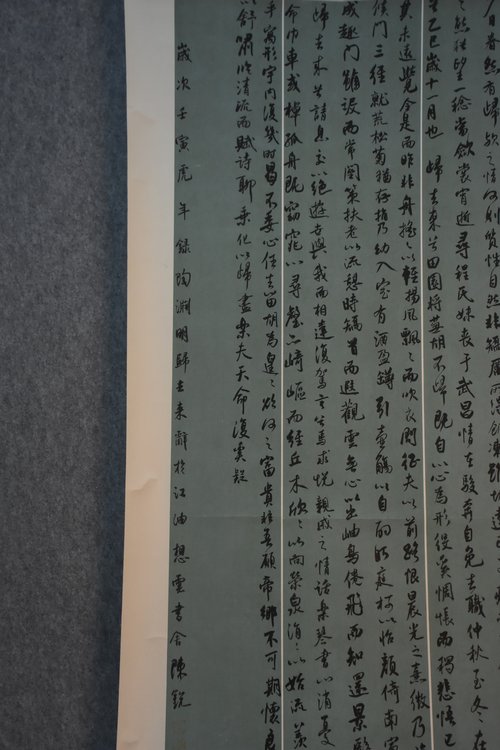 日眷然有歸歟之情何則質性自然非矯厲所得飢凍雖切違己
然猶望一稔當斂裳宵逝尋程氏妹喪于武昌情在駿奔自免去職仲秋至冬在
乙巳歲十一月也 歸去來兮田園將蕪胡不歸既自以心為形役奚惆悵而獨悲悟已
其未遠覺今是而昨非舟搖〻以輕揚風飄〻而吹衣問征夫以前路恨晨光之熹微乃
候門三徑就荒松菊猶存携幼入室有酒盈罇引壺觴以自酌眄庭柯以怡顏倚南窗
成趣門雖設而常關策扶老以流憩時矯首而遐觀雲無心以出岫鳥倦飛而知還景翳
歸去來兮請息交以絕遊世與我而相違復駕言兮焉求悅親戚之情話樂琴書以消憂
命巾車或棹孤舟既窈窕以尋壑亦崎嶇而經丘木欣〻以向榮泉涓〻以始流羨
乎寓形宇內復幾時曷不委心任去留胡為遑〻欲何之富貴非吾願帝鄉不可期懷良
以舒嘯臨清流而賦詩聊乘化以歸盡樂夫天命復奚疑
歲次壬寅虎年錄陶淵明歸去來辭於江油想雲書舍陳銳